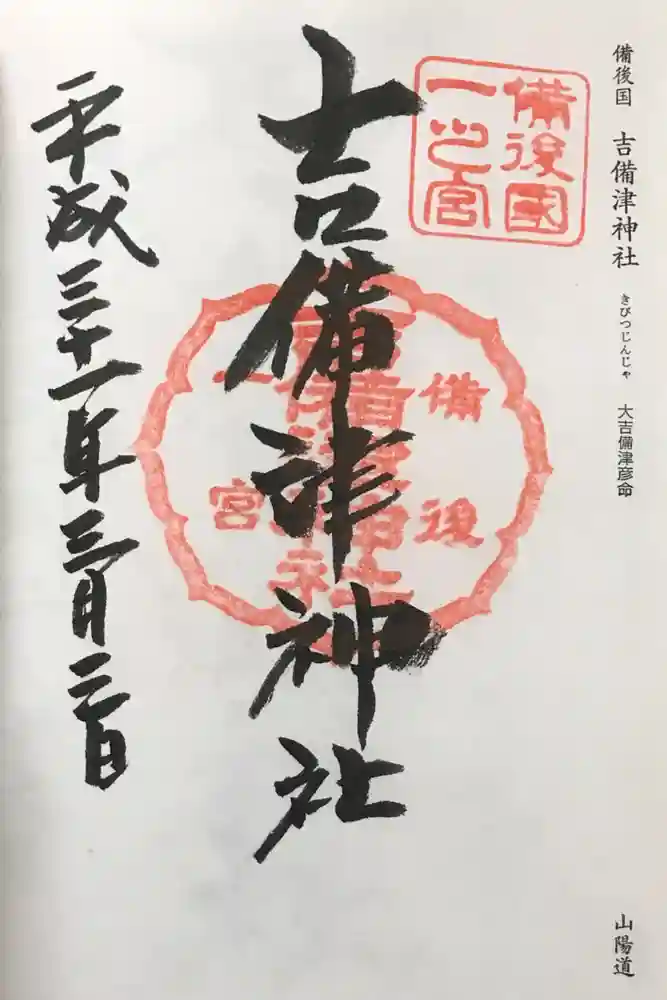 備後国 吉備津神社 きびつじんじゃ 大吉備津彦命 山陽道
備後國
一之宮
吉備津神社
備後
一宮
平成三十一年三月二日